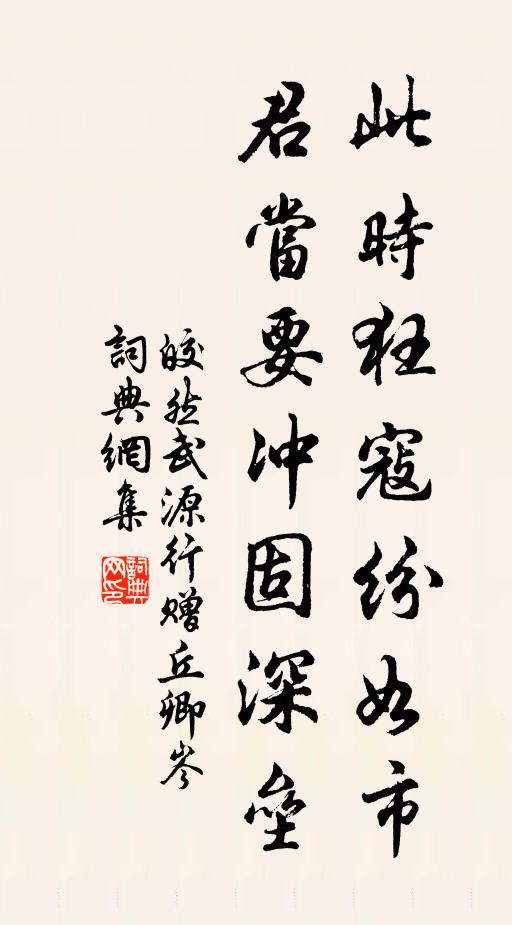 此時狂寇紛如市
君當要冲固深壘
皎然武源行贈丘卿岑
詞典網集
詞典網印